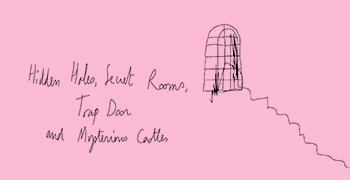 Hidden Holes, Secret Rooms,
Trap Door
and Mysterious Castles